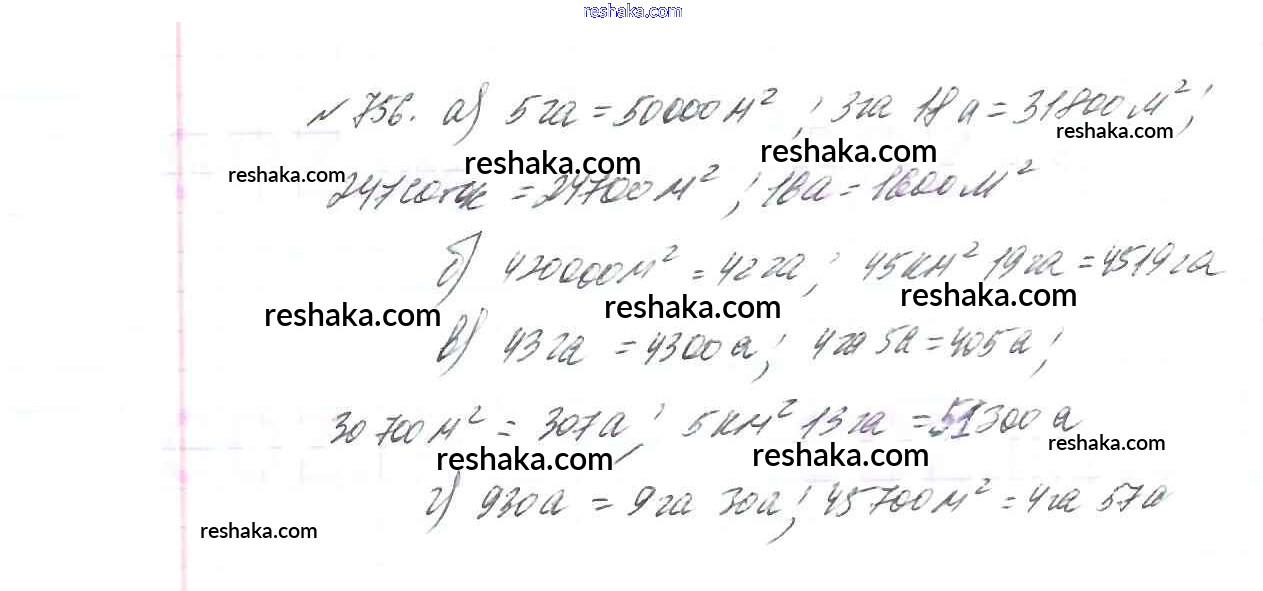 reshaka.com
№ 756. а) 5 га = 50000 м² ; 3 га 18 а = 31800 м² ;
reshaka.com reshaka.com reshaka.com reshaka.com
247 соток = 24700 м² ; 16 а = 1600 м²
б) 420000 м² = 42 га ; 45 км² 19 га = 4519 га
reshaka.com reshaka.com reshaka.com
в) 43 га = 4300 а ; 4 га 5 а = 405 а ;
30700 м² = 307 а ; 5 км² 13 га = 51300 а
reshaka.com reshaka.com reshaka.com
г) 930 а = 9 га 30 а ; 45700 м² = 4 га 57 а
reshaka.com